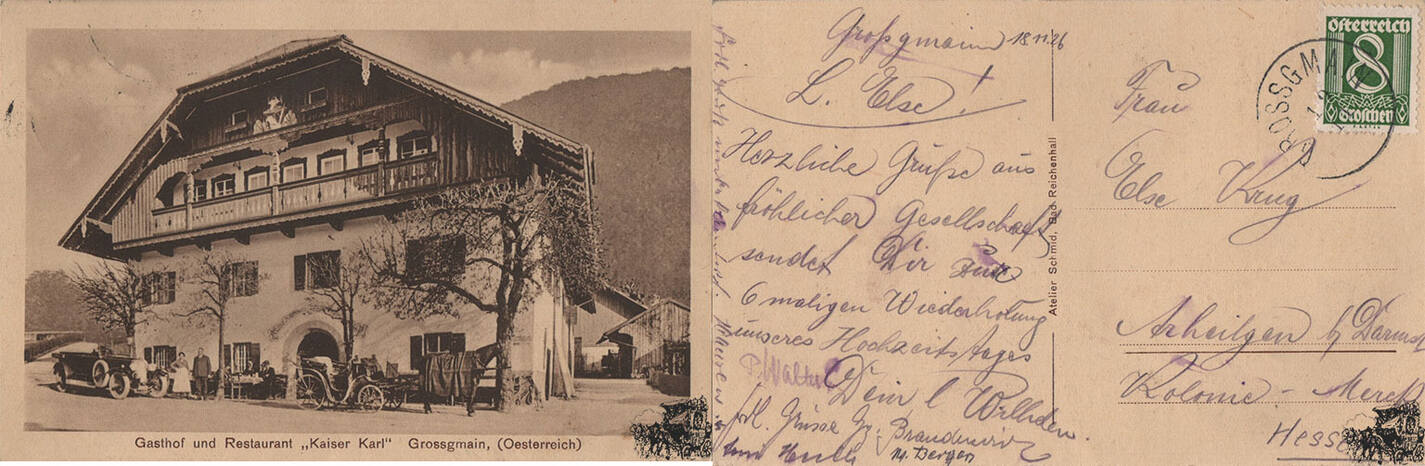 Gasthof und Restaurant „Kaiser Karl" Grossgmain, (Oesterreich)
Großgmain 18.11.26
L. Else!
Herzliche Grüße aus
fröhlicher Gesellschaft
sendet Dir zur
6 maligen Wiederholung
unseres Hochzeitstages
Dein l
Walter
frdl. Grüsse
Atelier Schmid, Bad Reichenhall
Österreich
8
Groschen
GROSSGMAIN
Frau
Else Krug
Arheilgen b/Darmst
Kolonie - Merck
Hessen